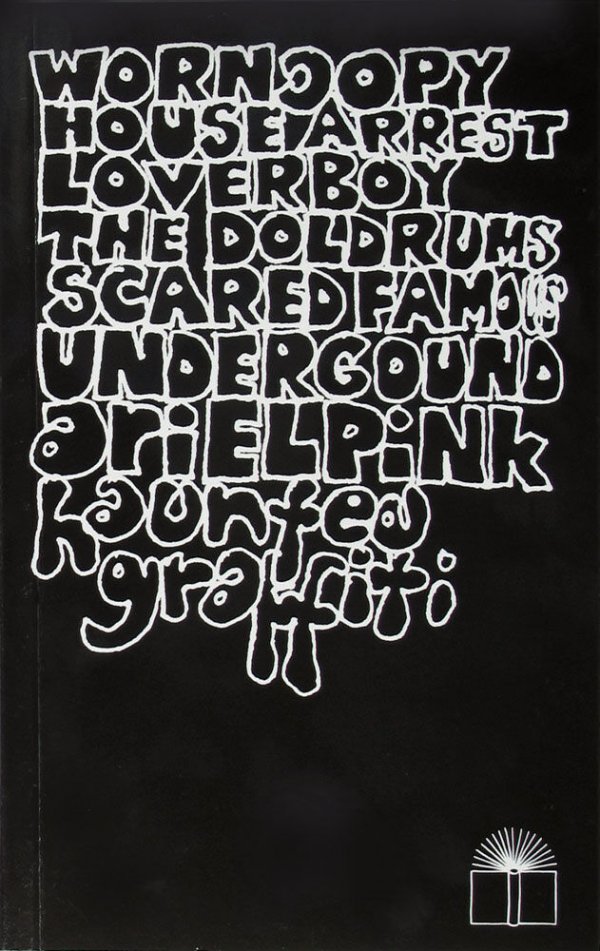 WORN COPY
HOUSE ARREST
LOVERBOY
THE DOLDRUMS
SCARED FAMOUS
UNDERGOUND
ariELPiNk
haunted
graffiti